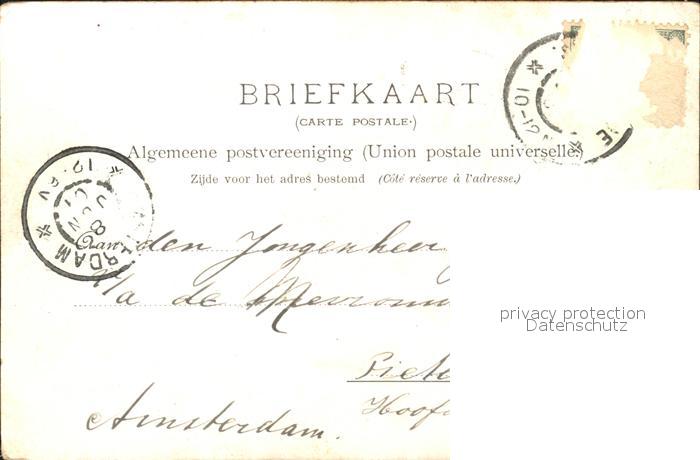 BRIEFKAART
(CARTE POSTALE.)
Algemeene postvereeniging (Union postale universelle)
Zijde voor het adres bestemd (Côté réservé à l'adresse.)
Aan den Jongenheer
p/a de Mevrouw
Piet
Hoof
Amsterdam.
privacy protection
Datenschutz
10-12